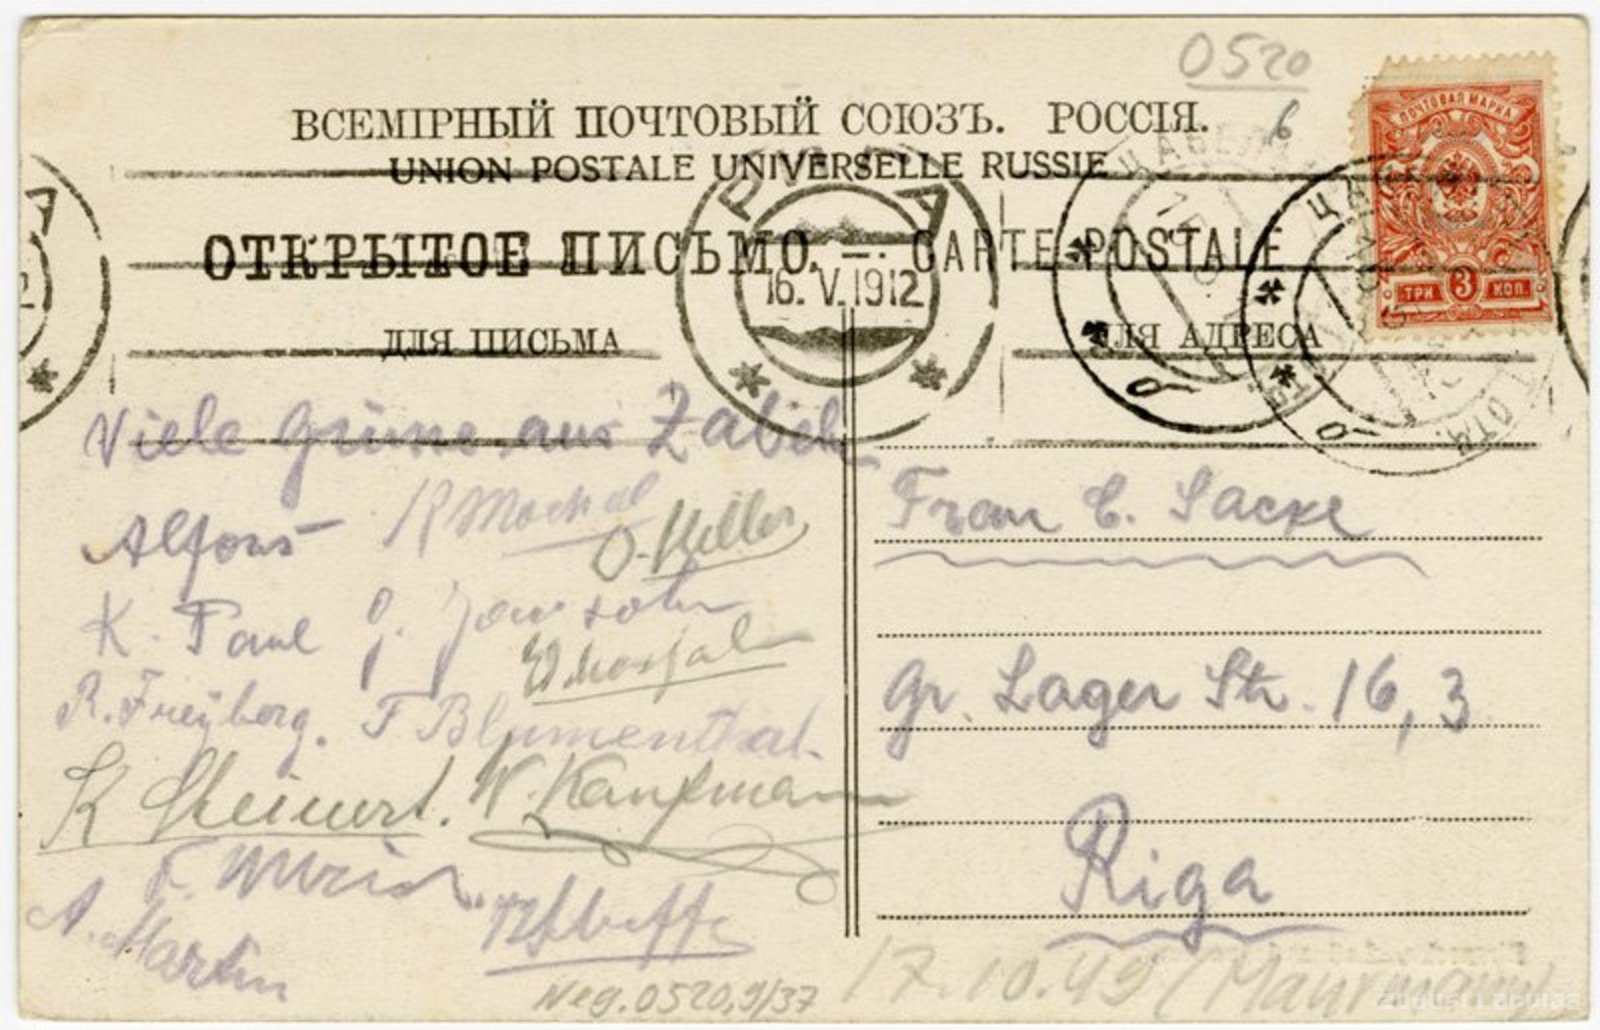 0520
6
ВСЕМІРНЫЙ ПОЧТОВЫЙ СОЮЗЪ. РОССІЯ.
UNION POSTALE UNIVERSELLE RUSSIE
ОТКРЫТОЕ ПИСЬМО. — CARTE POSTALE
ПОЧТОВАЯ МАРКА
ТРИ 3 КОП.
РИГА
16. V. 1912
ДЛЯ ПИСЬМА
ДЛЯ АДРЕСА
Viele Grüsse aus Zabeln
Alfons
O. Keller
K. Paul
R. Freyberg. F Blumenthal.
K Steinert. W. Kaufmann
F.
A. Martin
Frau E. Sacke
Gr. Lager Str. 16, 3
Riga
Neg. 0520,9/37
17.10.49